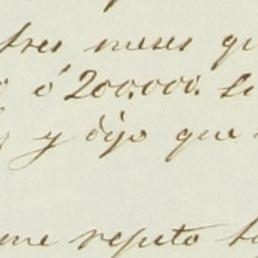 tres meses qu
ó 200.000. Li
y dijo que
me repito